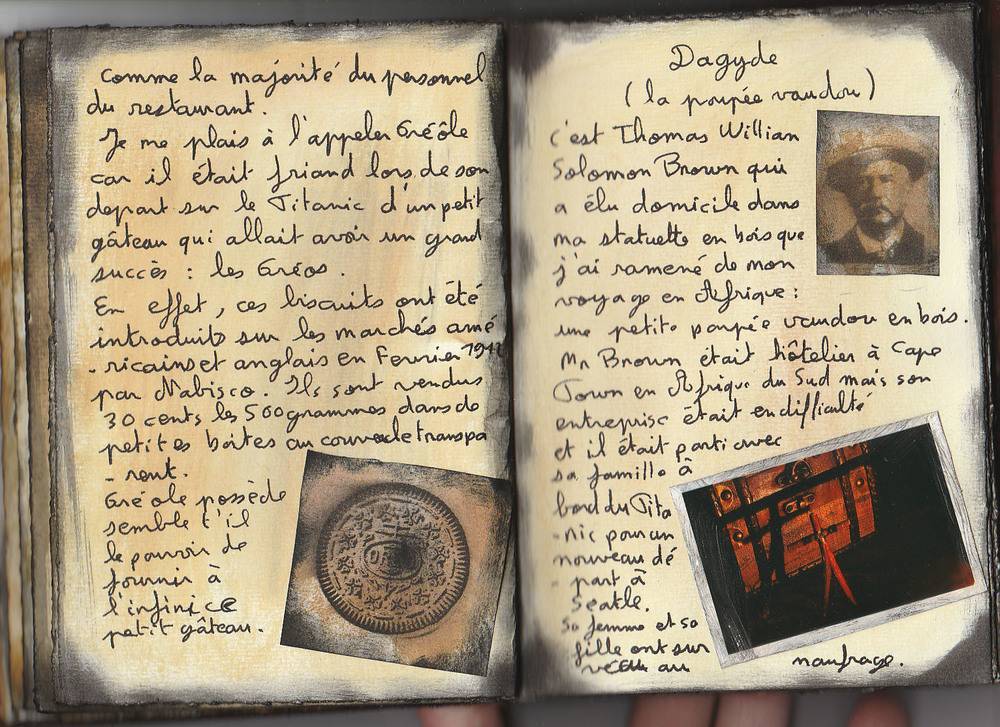 comme la majorité du personnel
du restaurant.
Je me plais à l'appeler Gréôle
car il était friand lors de son
depart sur le Titanic d'un petit
gâteau qui allait avoir un grand
succès : les Gréos.
En effet, ces biscuits ont été
introduits sur les marchés amé
- ricains et anglais en Fevrier 1912
par Nabisco. Ils sont vendus
30 cents les 500 grammes dans de
petites boites au couvercle transpa
- rent.
Gréole possède
semble t'il
le pouvoir de
fournir à
l'infini ce
petit gâteau.
Dagyde
(la poupée vaudou)
c'est Thomas Willian
Solomon Brown qui
a élu domicile dans
ma statuette en bois que
j'ai ramené de mon
voyage en Afrique :
une petite poupée vaudou en bois.
Mr Brown était hôtelier à Cape
Town en Afrique du Sud mais son
entreprise était en difficulté
et il était parti avec
sa famille à
bord du Tita
- nic pour un
nouveau dé
- part à
Seatle.
Sa femme et sa
fille ont sur
vécu au naufrage.